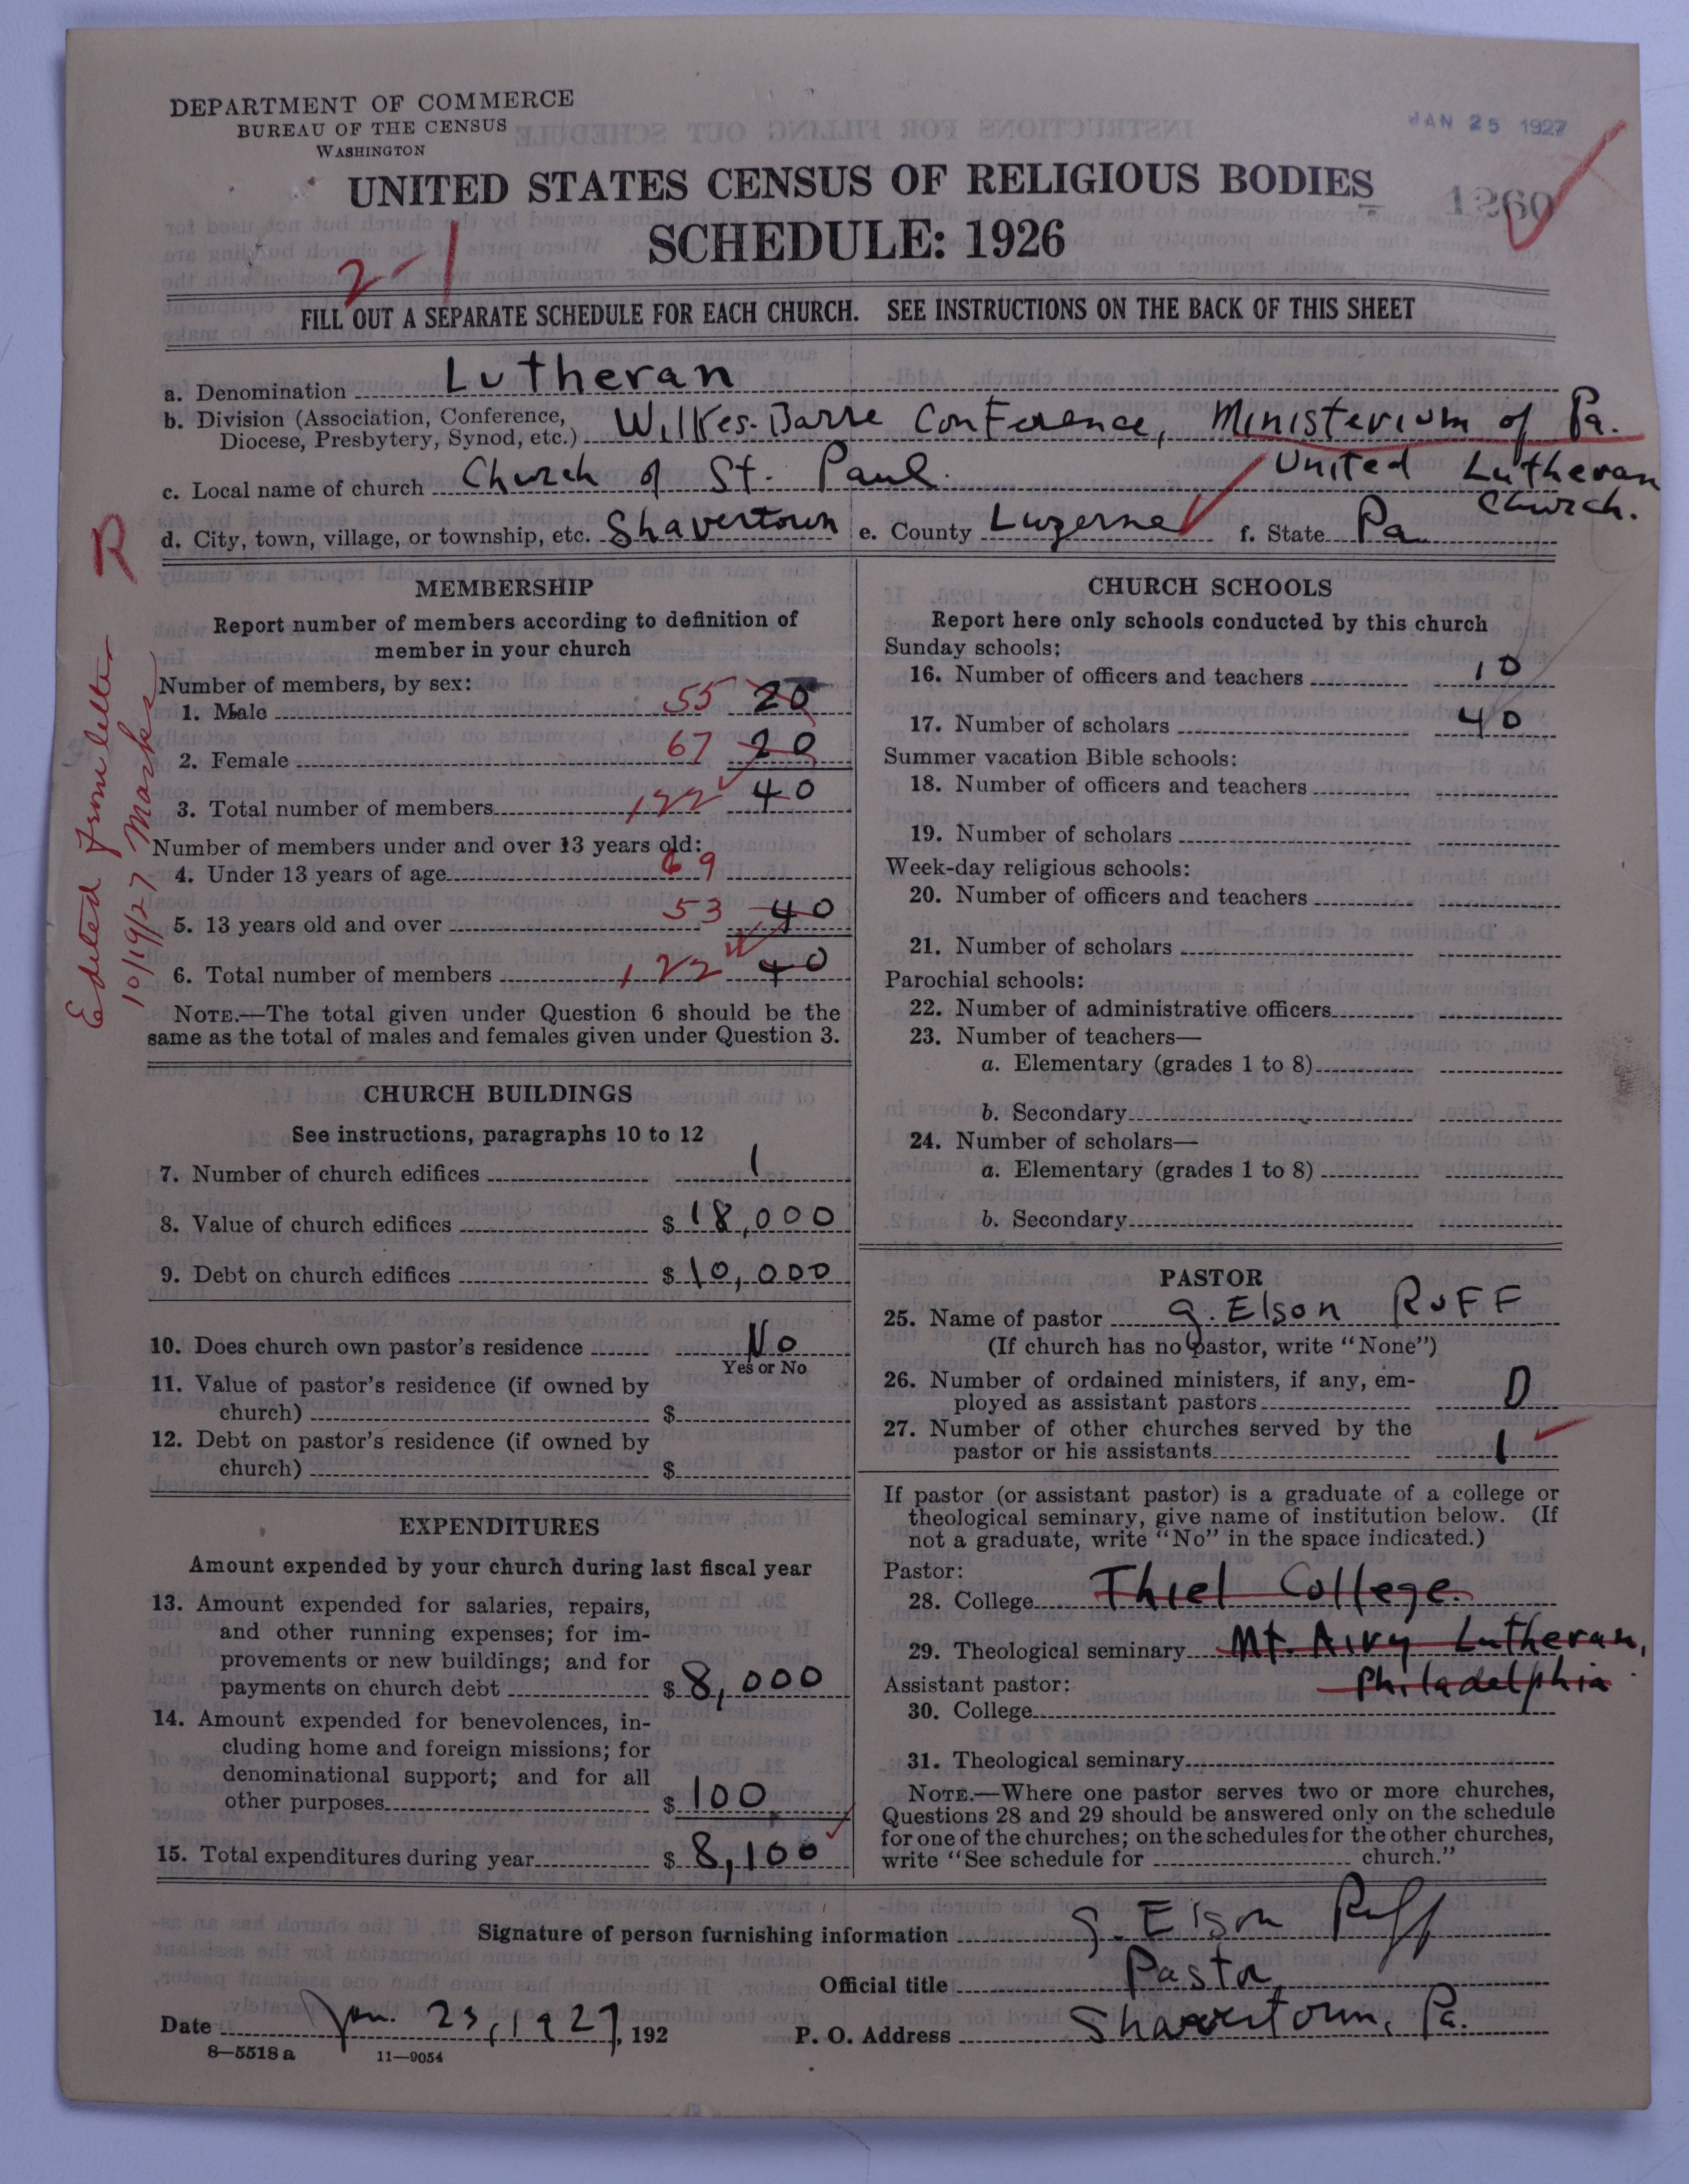 DEPARTMENT OF COMMERCE
BUREAU OF THE CENSUS
WASHINGTON
JAN 25 1927
UNITED STATES CENSUS OF RELIGIOUS BODIES
1260
SCHEDULE: 1926
2-1
FILL OUT A SEPARATE SCHEDULE FOR EACH CHURCH. SEE INSTRUCTIONS ON THE BACK OF THIS SHEET
a. Denomination Lutheran
b. Division (Association, Conference,
Diocese, Presbytery, Synod, etc.) Wilkes-Barre Conference, Ministerium of Pa.
United Lutheran
Church.
c. Local name of church Church of St. Paul
d. City, town, village, or township, etc. Shavertown e. County Luzerne f. State Pa
R
Edited from letter
10/19/27 Marks
MEMBERSHIP
Report number of members according to definition of
member in your church
Number of members, by sex:
1. Male 55 20
2. Female 67 20
3. Total number of members 122 40
Number of members under and over 13 years old:
4. Under 13 years of age 69
5. 13 years old and over 53 40
6. Total number of members 122 40
NOTE.—The total given under Question 6 should be the
same as the total of males and females given under Question 3.
CHURCH BUILDINGS
See instructions, paragraphs 10 to 12
7. Number of church edifices 1
8. Value of church edifices $ 18,000
9. Debt on church edifices $ 10,000
10. Does church own pastor's residence No
Yes or No
11. Value of pastor's residence (if owned by
church) $
12. Debt on pastor's residence (if owned by
church) $
EXPENDITURES
Amount expended by your church during last fiscal year
13. Amount expended for salaries, repairs,
and other running expenses; for im-
provements or new buildings; and for
payments on church debt $ 8,000
14. Amount expended for benevolences, in-
cluding home and foreign missions; for
denominational support; and for all
other purposes $ 100
15. Total expenditures during year $ 8,100
CHURCH SCHOOLS
Report here only schools conducted by this church
Sunday schools:
16. Number of officers and teachers 10
17. Number of scholars 40
Summer vacation Bible schools:
18. Number of officers and teachers
19. Number of scholars
Week-day religious schools:
20. Number of officers and teachers
21. Number of scholars
Parochial schools:
22. Number of administrative officers
23. Number of teachers—
a. Elementary (grades 1 to 8)
b. Secondary
24. Number of scholars—
a. Elementary (grades 1 to 8)
b. Secondary
PASTOR
25. Name of pastor G. Elson Ruff
(If church has no pastor, write "None")
26. Number of ordained ministers, if any, em-
ployed as assistant pastors 0
27. Number of other churches served by the
pastor or his assistants 1
If pastor (or assistant pastor) is a graduate of a college or
theological seminary, give name of institution below. (If
not a graduate, write "No" in the space indicated.)
Pastor:
28. College Thiel College.
29. Theological seminary Mt. Airy Lutheran,
Philadelphia
Assistant pastor:
30. College
31. Theological seminary
NOTE.—Where one pastor serves two or more churches,
Questions 28 and 29 should be answered only on the schedule
for one of the churches; on the schedules for the other churches,
write "See schedule for church."
Signature of person furnishing information G. Elson Ruff
Official title Pastor
Date Jan. 23, 1927, 192 P. O. Address Shavertown, Pa.
8—5518 a 11—9054